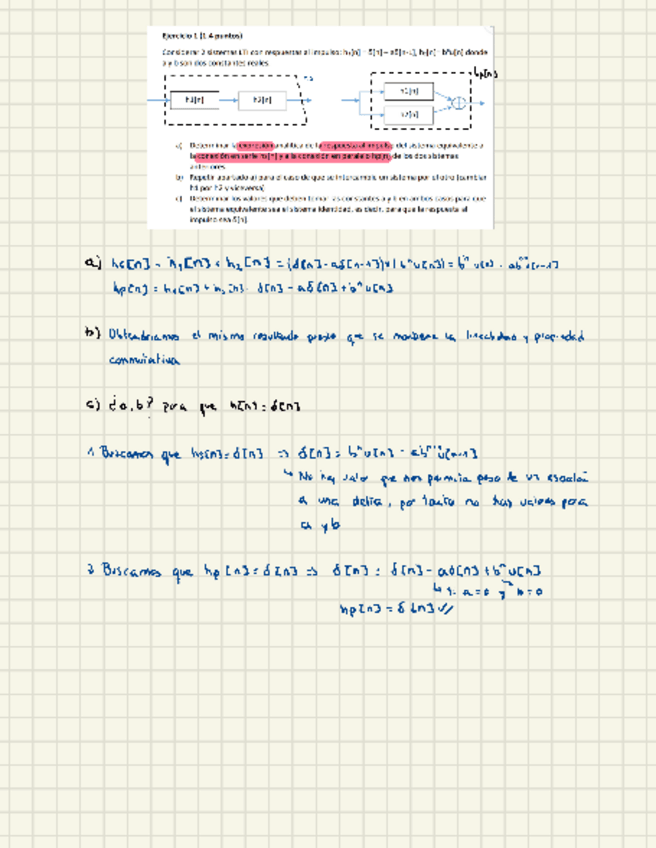 Ejercicio 1 (1.4 puntos)
Considerar 2 sistemas LTI con respuestas al impulso: h₁[n] = δ[n] – aδ[n-1], h₂[n] = bⁿu[n] donde
a y b son dos constantes reales
hp[n]
h1[n]
h2[n]
h1[n]
h2[n]
a) Determinar la expresión analítica de la respuesta al impulso del sistema equivalente a
la conexión en serie hs[n] y a la conexión en paralelo hp[n], de los dos sistemas
anteriores
b) Repetir apartado a) para el caso de que se intercambie un sistema por el otro (cambiar
h1 por h2 y viceversa)
c) Determinar los valores que deben tomar las constantes a y b en ambos casos para que
el sistema equivalente sea el sistema identidad, es decir, para que la respuesta al
impulso sea δ[n].
a) hs[n] = h₁[n] * h₂[n] = (δ[n]-aδ[n-1])*(bⁿu[n]) = bⁿu[n] - abⁿ⁻¹u[n-1]
hp[n] = h₁[n] + h₂[n] = δ[n] - aδ[n] + bⁿu[n]
b) Obtendríamos el mismo resultado puesto que se mantiene la linealidad y propiedad
conmutativa
c) ¿a, b? para que h[n] = δ[n]
1. Buscamos que hs[n] = δ[n] ⇒ δ[n] = bⁿu[n] - abⁿ⁻¹u[n-1]
↳ No hay valor que nos permita paso de un escalón
a una delta, por tanto no hay valores para
a y b
2 Buscamos que hp[n] = δ[n] ⇒ δ[n] = δ[n] - aδ[n] + bⁿu[n]
↳ Si a=0 y b=0
hp[n] = δ[n] ✓